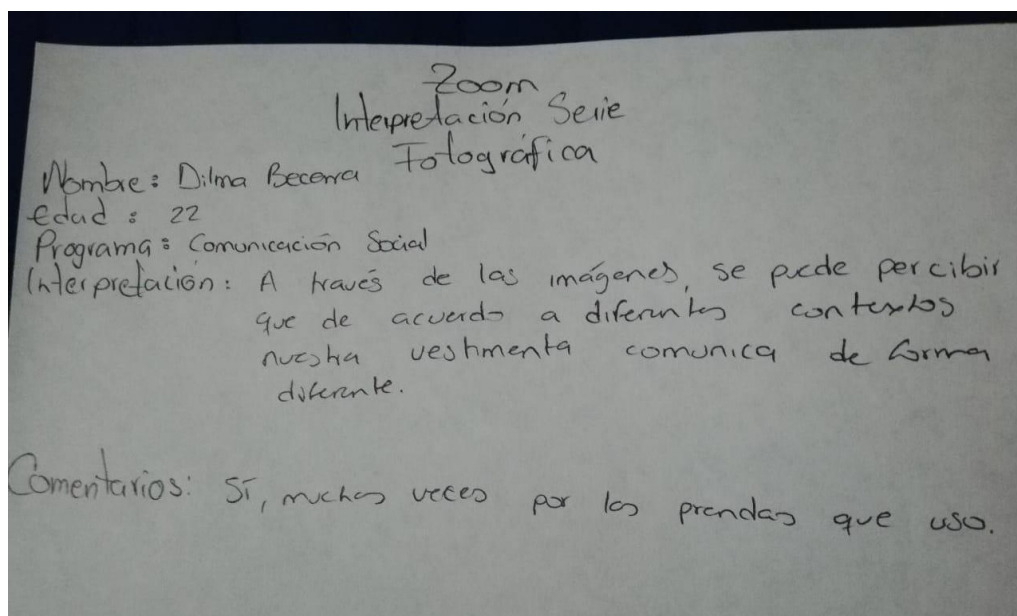 Zoom
Interpretación Serie
Fotográfica
Nombre: Dilma Becerra
Edad: 22
Programa: Comunicación Social
Interpretación: A través de las imágenes, se puede percibir
que de acuerdo a diferentes contextos
nuestra vestimenta comunica de forma
diferente.
Comentarios: Sí, muchas veces por las prendas que uso.